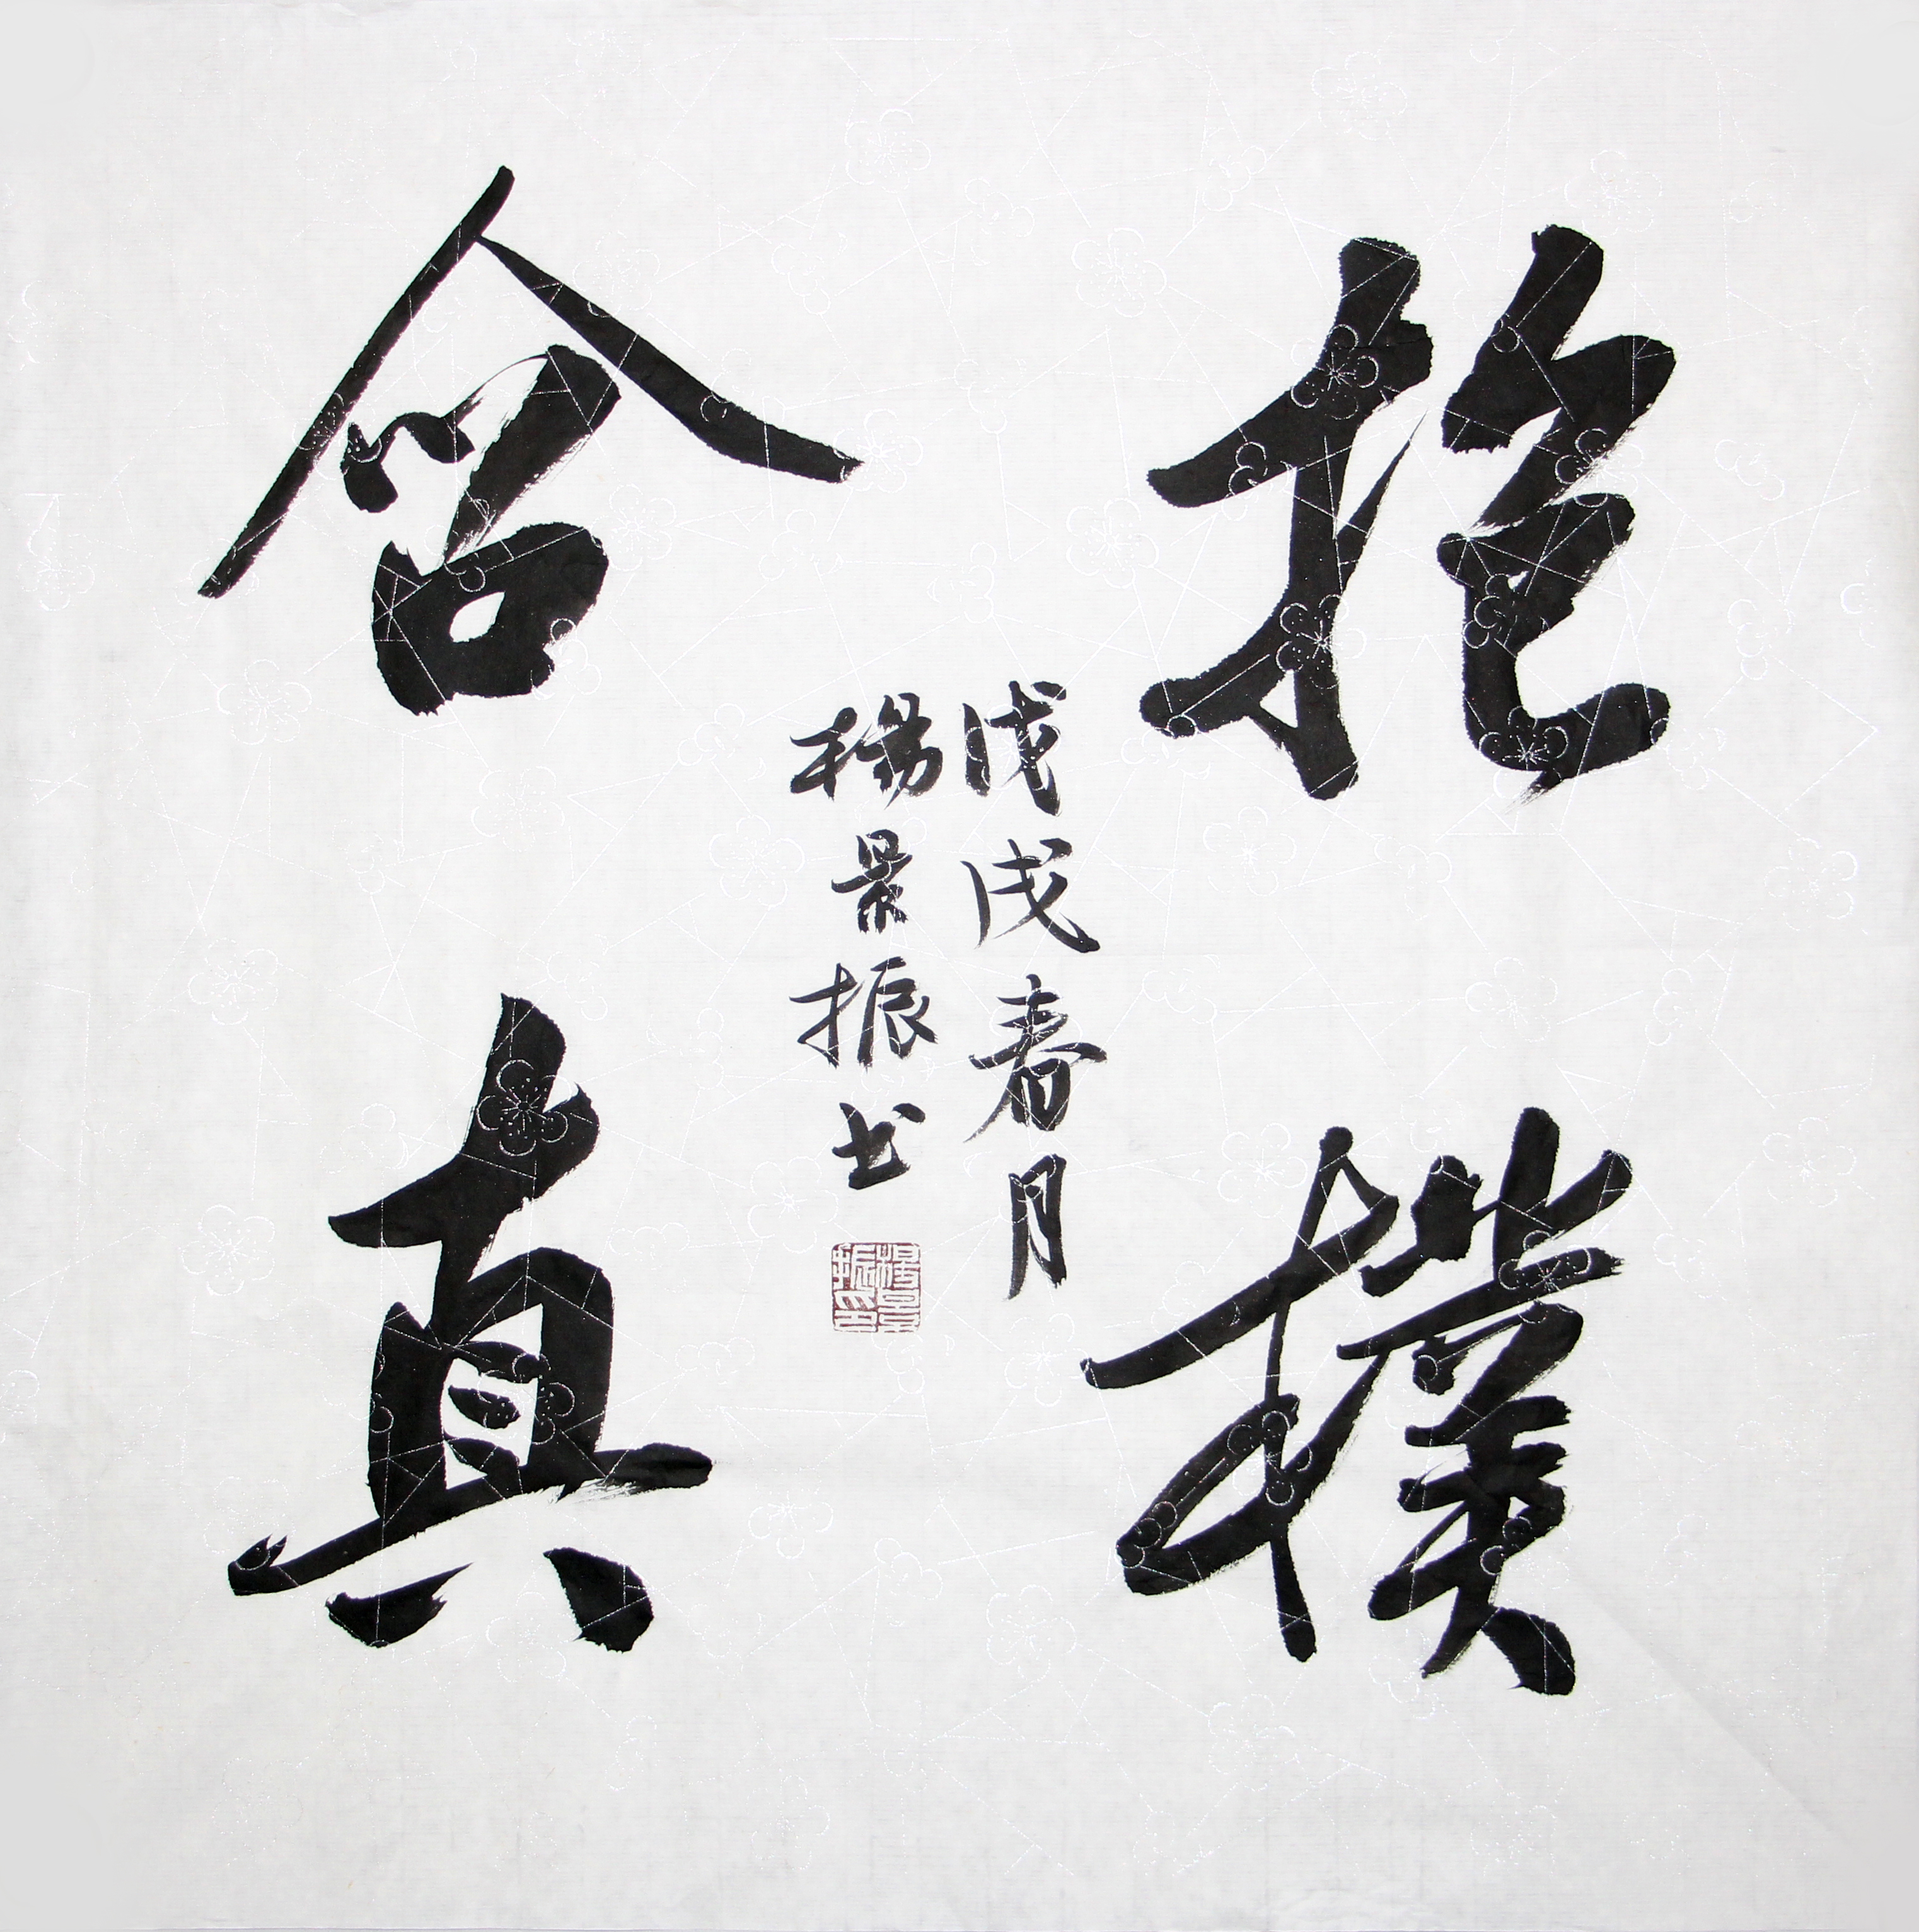 抱樸
含真
戊戌春月
楊景振书
楊景振印